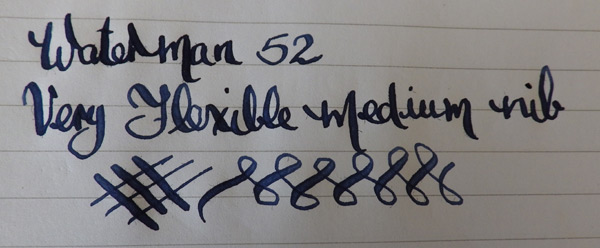 Waterman 52
Very Flexible medium nib